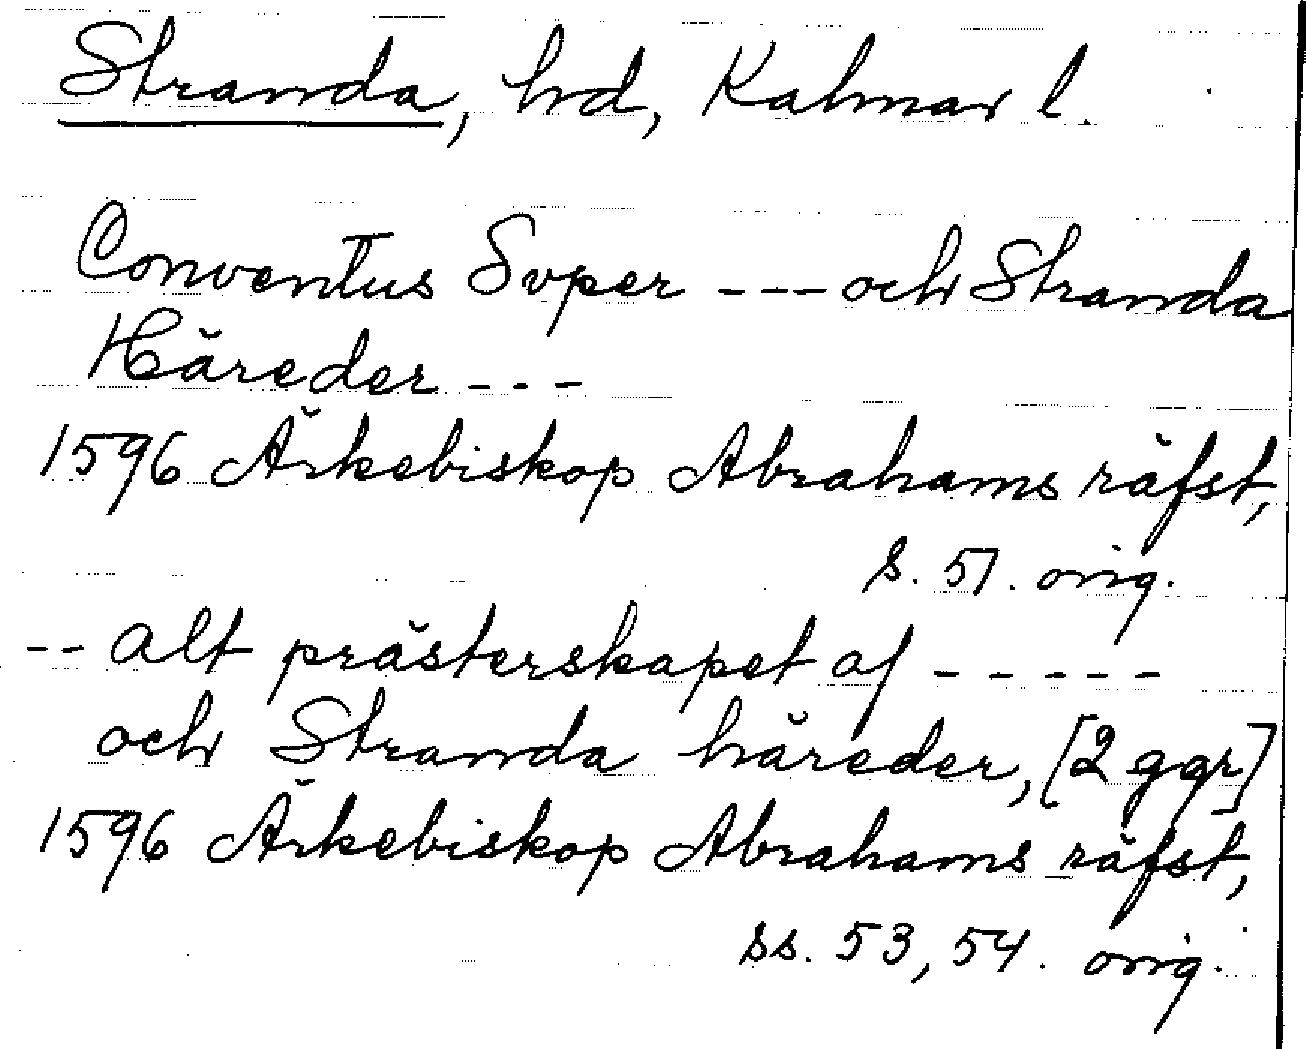 Stranda, hd, Kalmar l.
Conventus Svper --- och Stranda
Häreder ---
1596 Ärkebiskop Abrahams räfst,
s. 51. orig.
-- alt prästerskapet af -----
och Stranda häreder, [2 ggr]
1596 Ärkebiskop Abrahams räfst,
ss. 53, 54. orig.